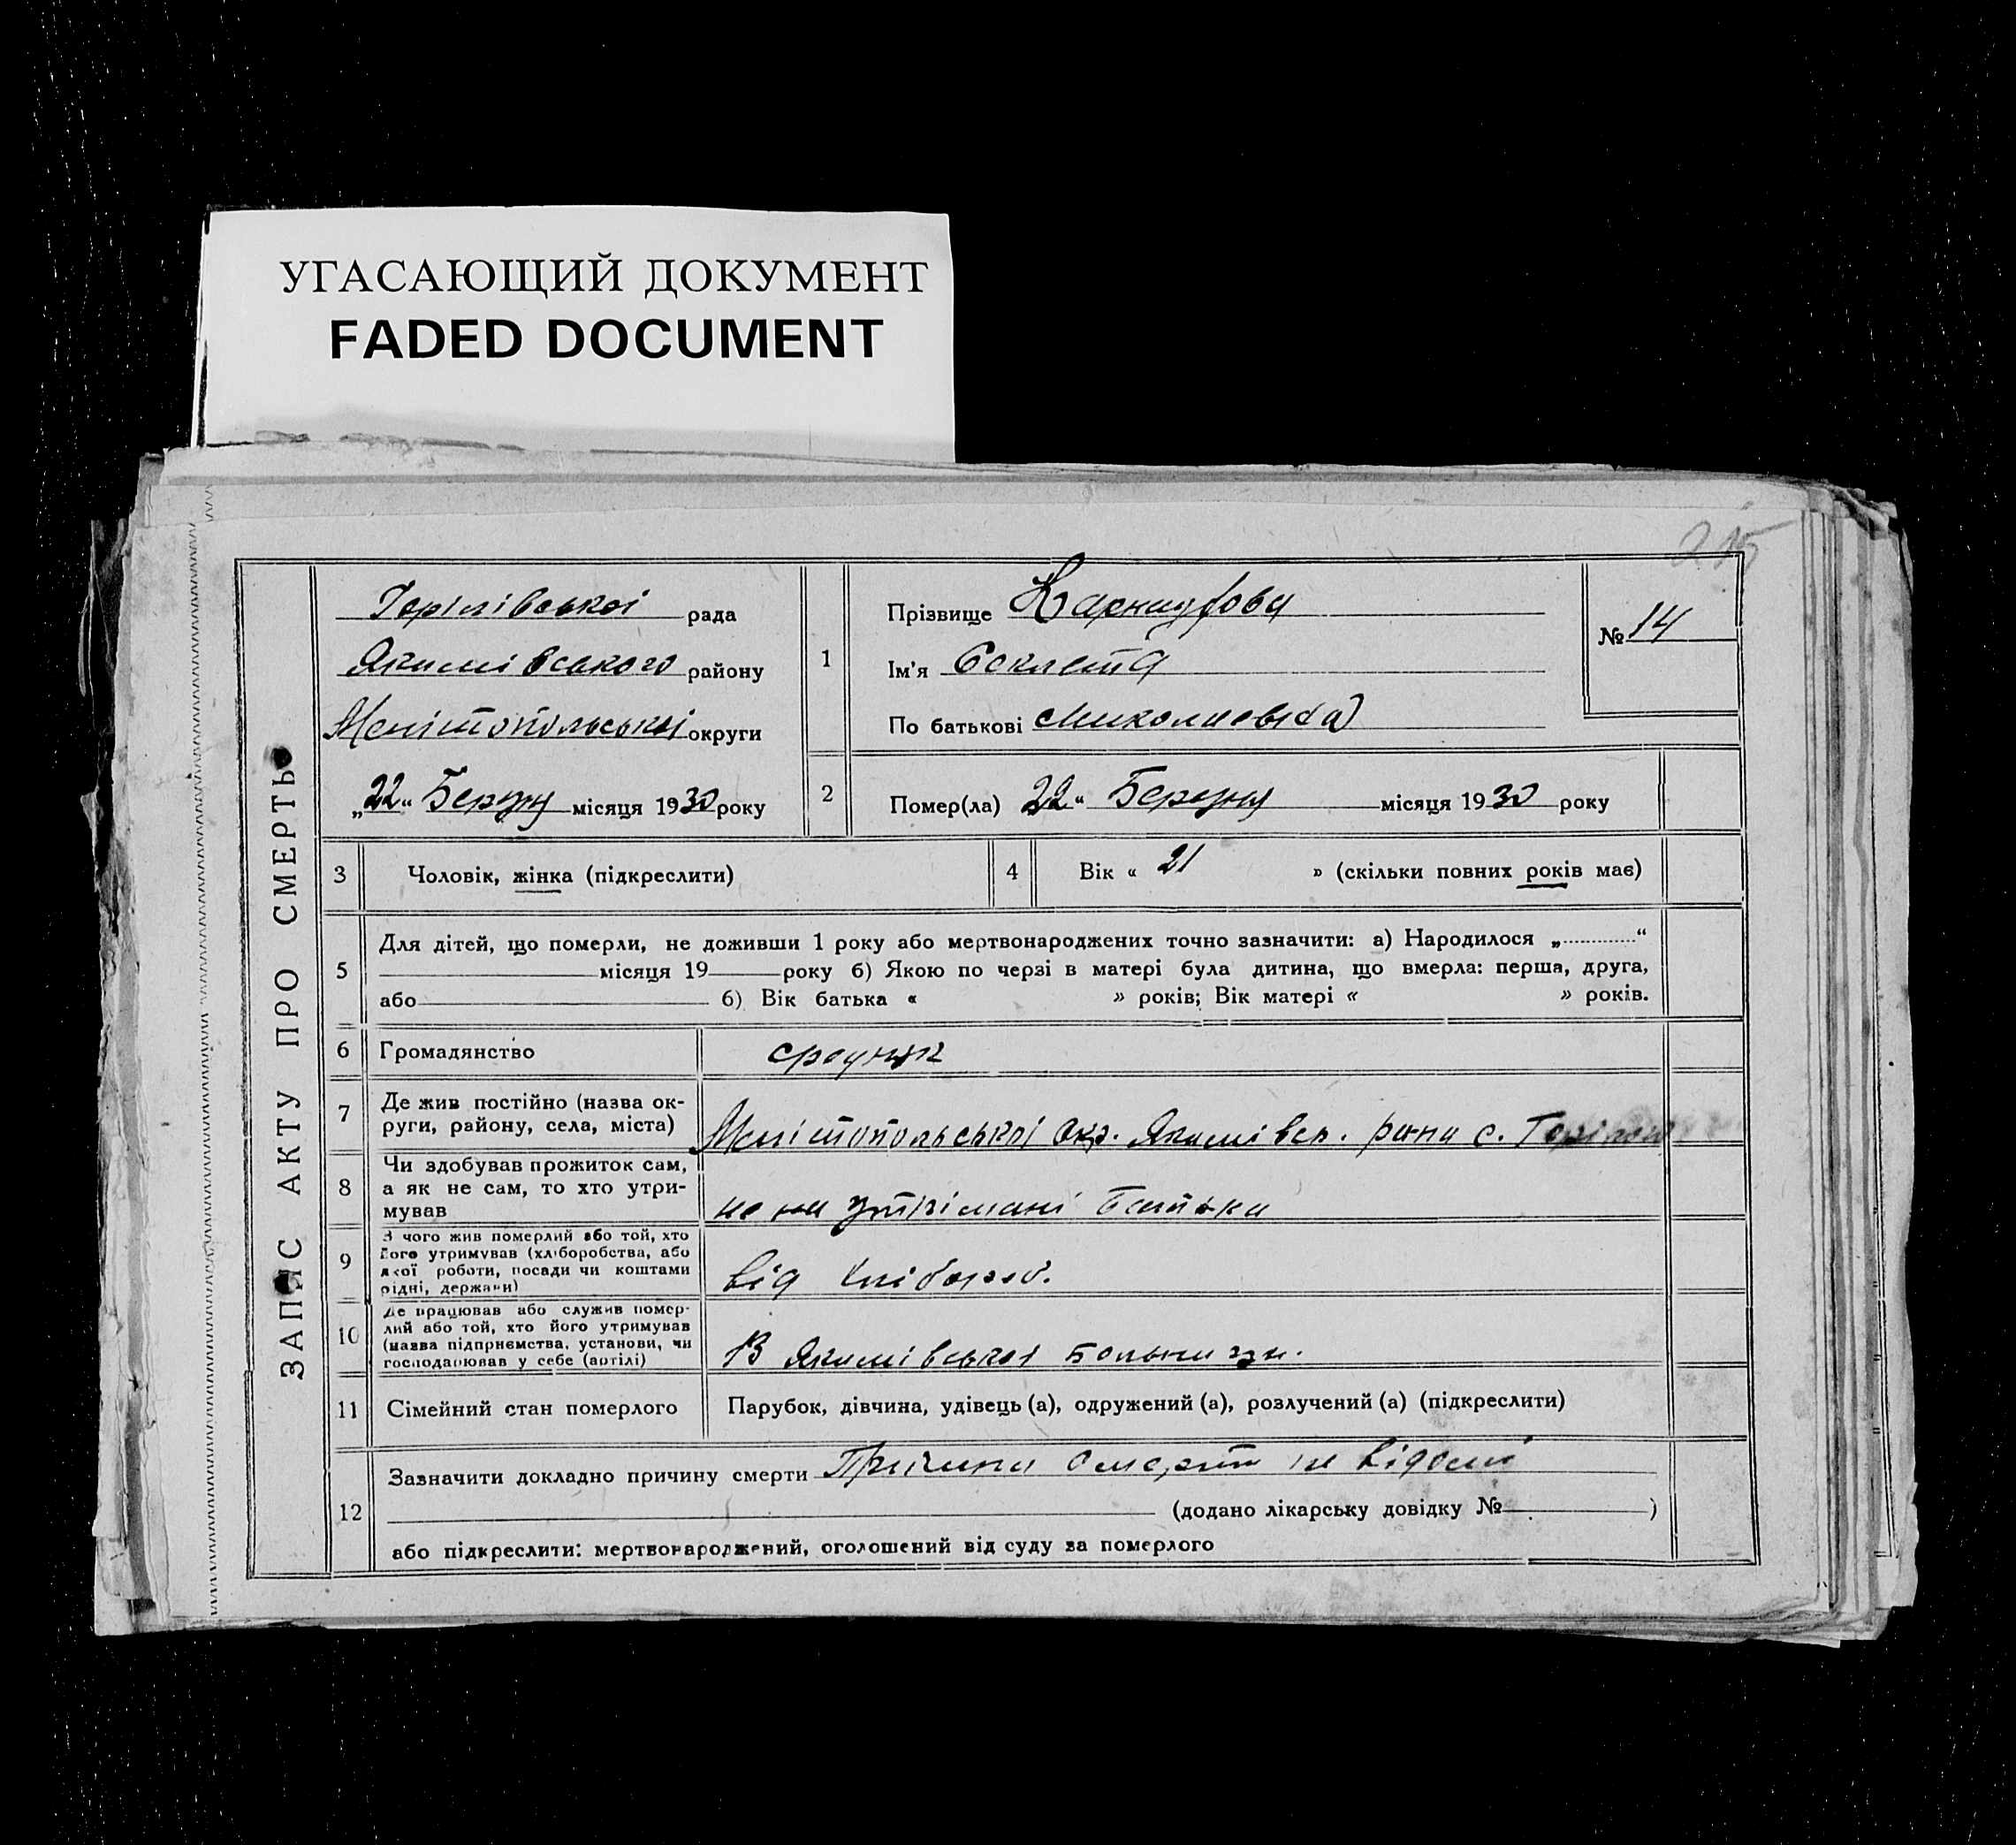 УГАСАЮЩИЙ ДОКУМЕНТ
FADED DOCUMENT
215
ЗАПИС АКТУ ПРО СМЕРТЬ
Горілівської рада
Якимівського району
Мелітопольської округи
„22“ Березня місяця 1930 року
1
Прізвище
Ім'я
По батькові Миколаевн(а)
№ 14
2
Помер(ла) 22“ Березня місяця 1930 року
3
Чоловік, жінка (підкреслити)
4
Вік « 21 » (скільки повних років має)
5
Для дітей, що померли, не доживши 1 року або мертвонароджених точно зазначити: а) Народилося „............“
місяця 19 року б) Якою по черзі в матері була дитина, що вмерла: перша, друга,
або б) Вік батька « » років; Вік матері « » років.
6
Громадянство
7
Де жив постійно (назва ок-
руги, району, села, міста)
Мелітопольської Окр. Якимівсь. рану с.
8
Чи здобував прожиток сам,
а як не сам, то хто утри-
мував
на утрімані Батька
9
З чого жив померлий або той, хто
його утримував (хліборобства, або
якої роботи, посади чи коштами
рідні, держави)
від хлібороб.
10
Де працював або служив помер-
лий або той, хто його утримував
(назва підприємства, установи, чи
господарював у себе (артілі)
В Якимівської Больници.
11
Сімейний стан померлого
Парубок, дівчина, удівець (а), одружений (а), розлучений (а) (підкреслити)
12
Зазначити докладно причину смерти Причина Смерти не відомі
(додано лікарську довідку № )
або підкреслити: мертвонароджений, оголошений від суду за померлого